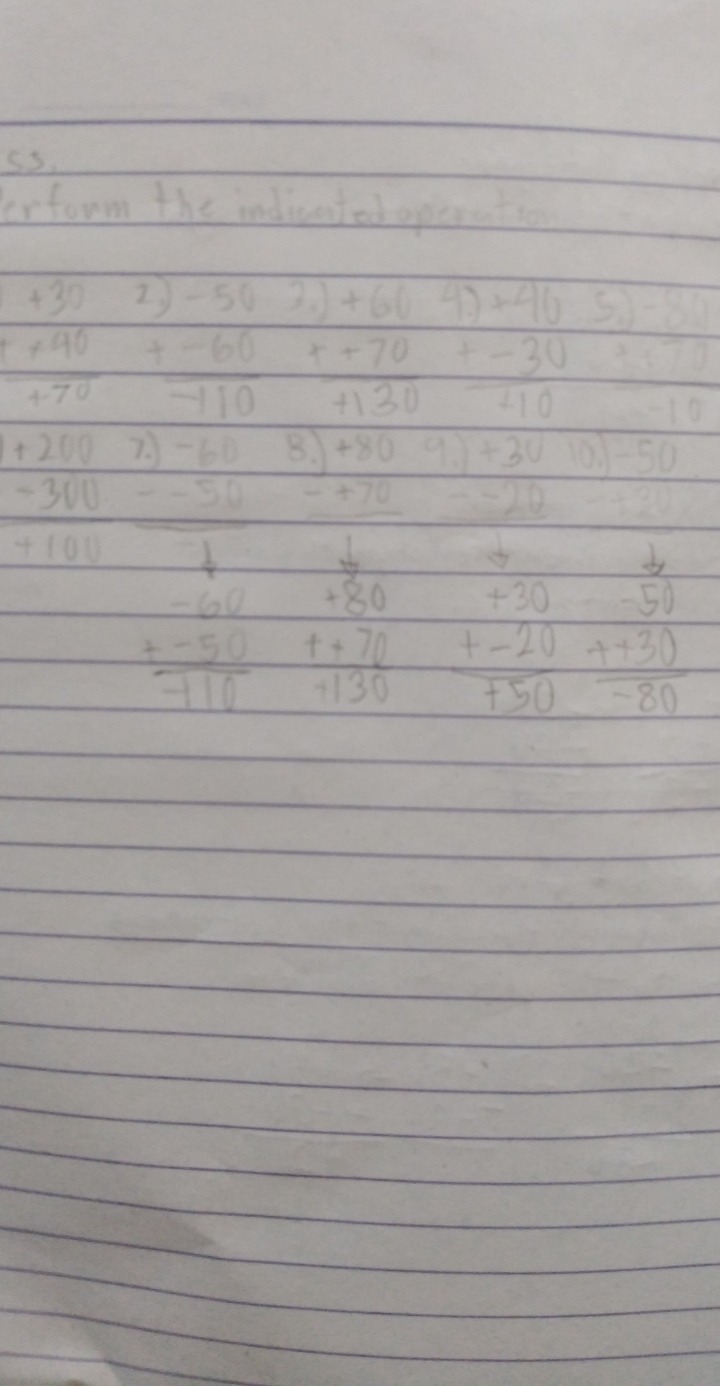 ss.
erform the indicated operation
) +30 2.) -50 3.) +60 4.) +40 5.) -80
+ +40 + -60 + +70 + -30 + +70
+70 -110 +130 +10 -10
) +200 7.) -60 8.) +80 9.) +30 10.) -50
- -300 - -50 - +70 - -20 - +30
+100
-60 +80 +30 -50
+ -50 + +70 + -20 + +30
-110 +130 +50 -80